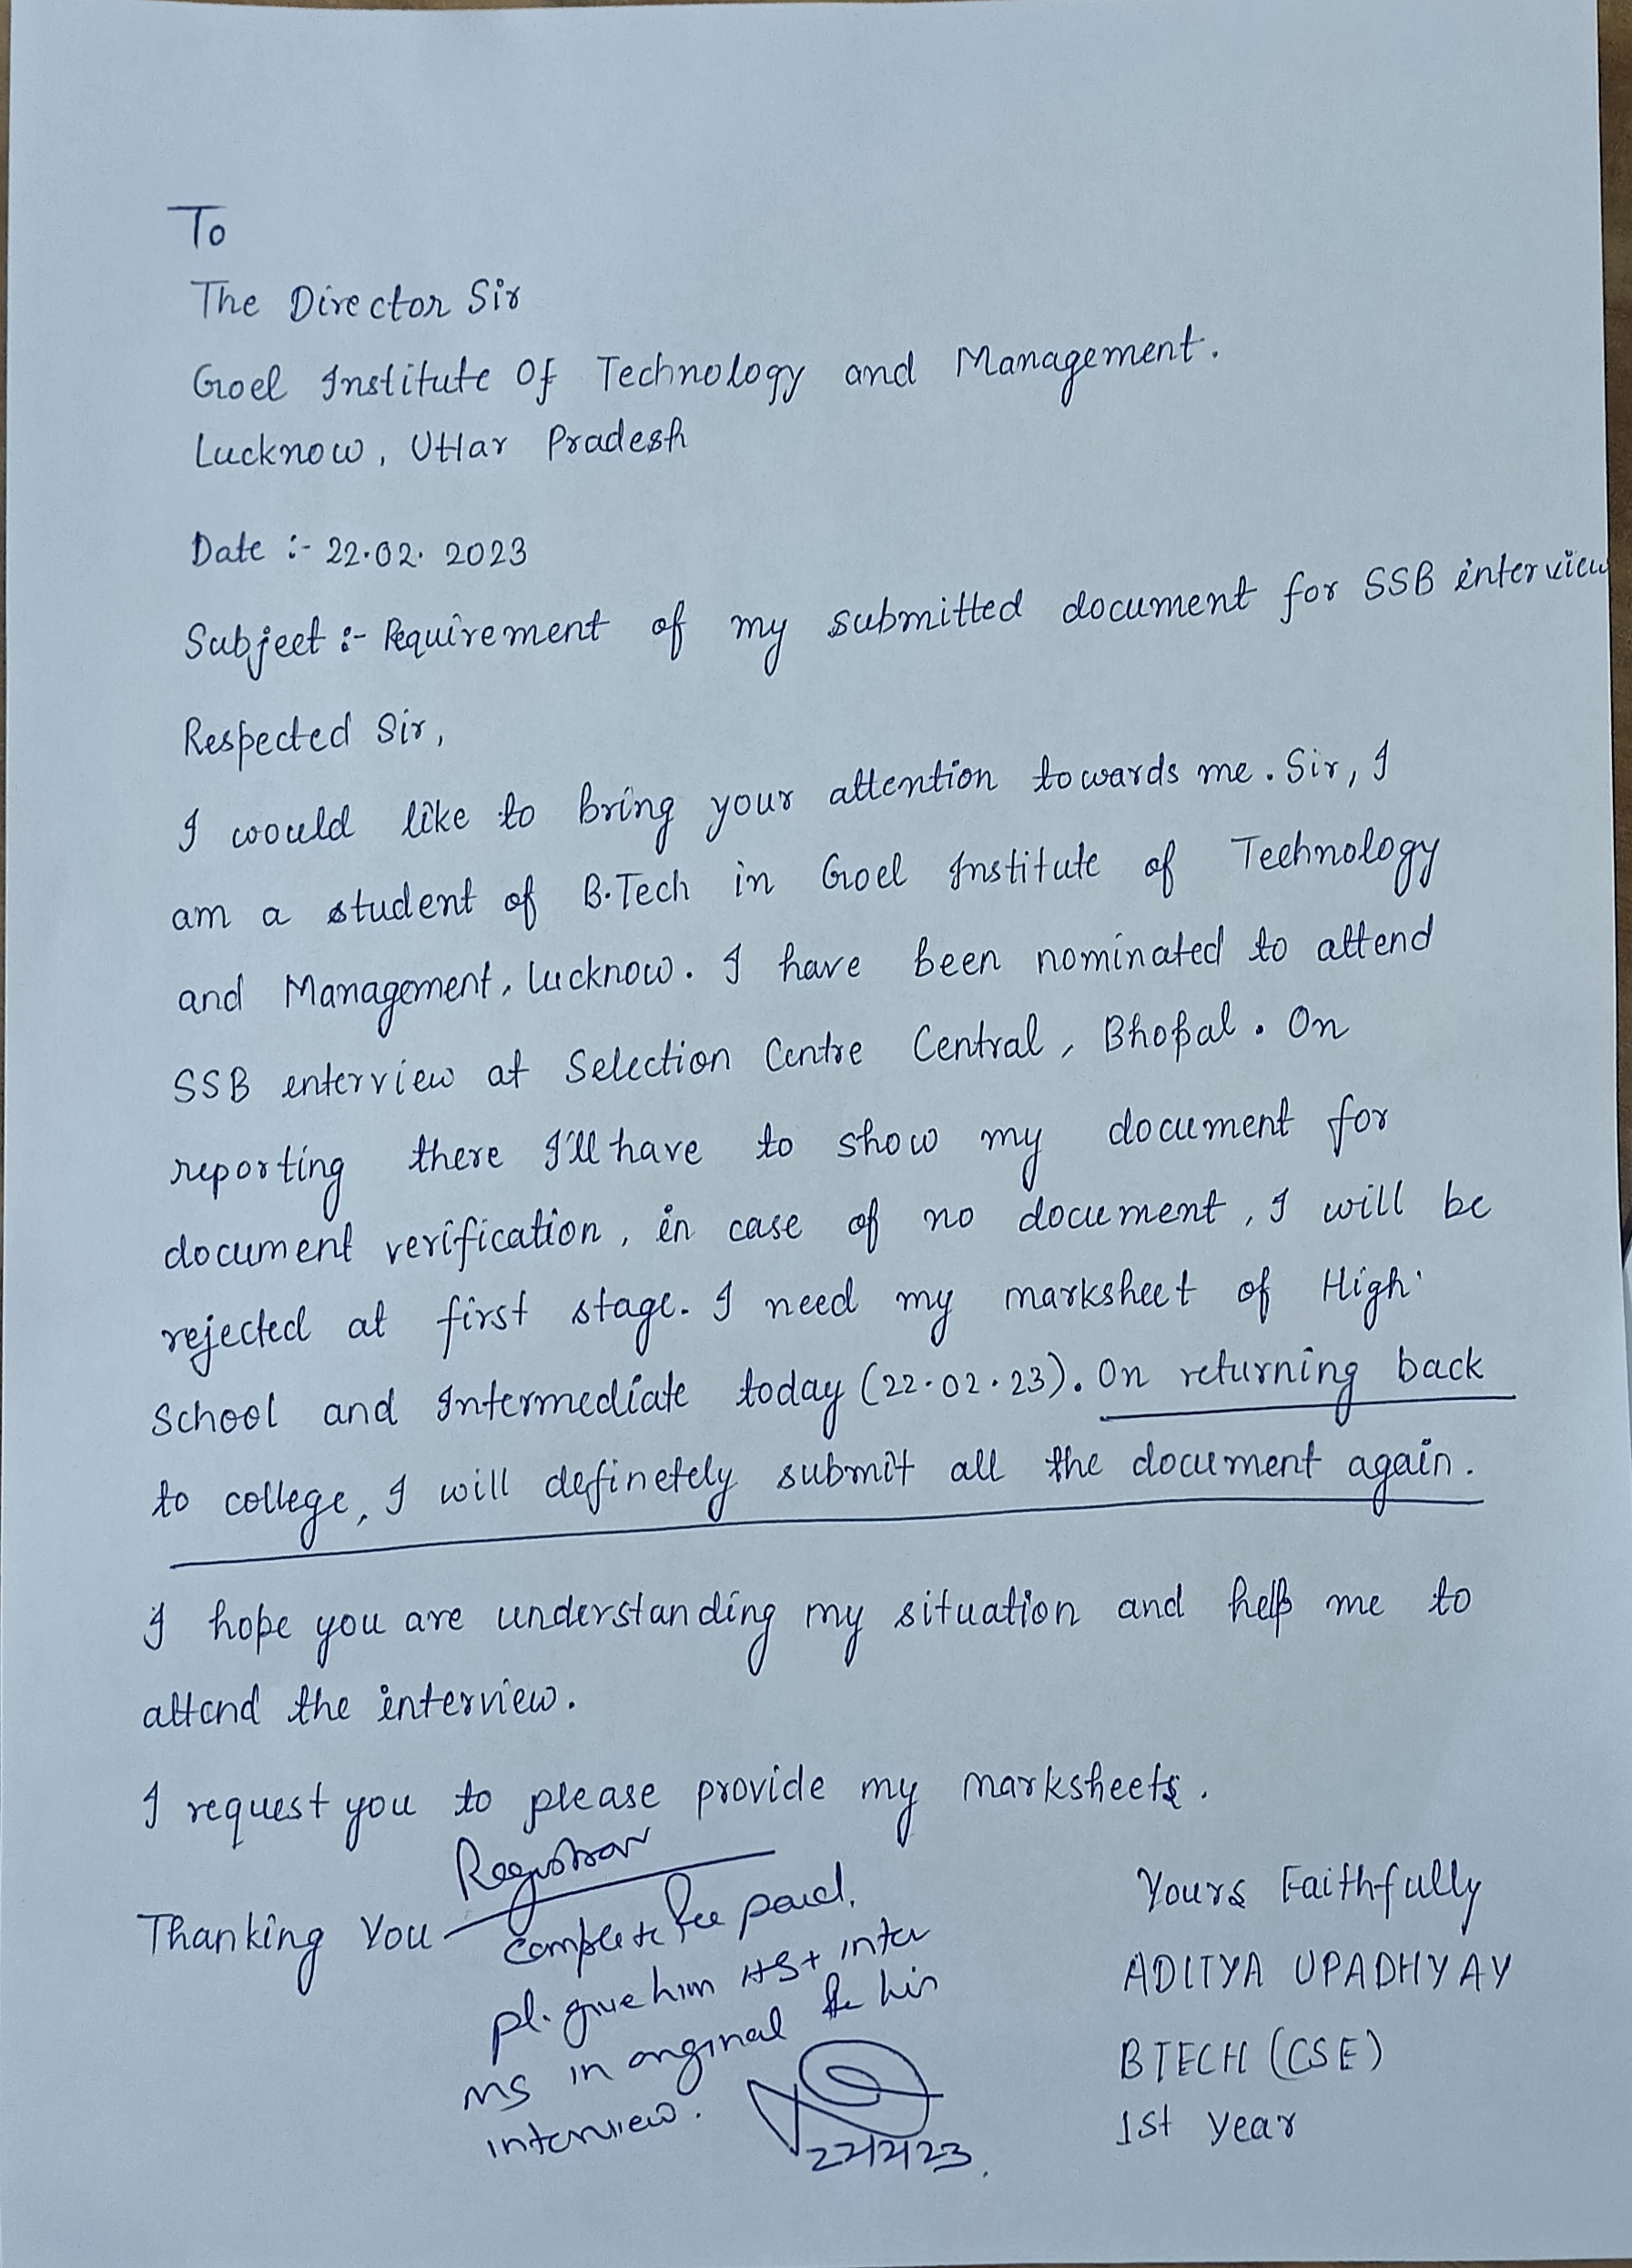 To
The Director Sir
Goel Institute Of Technology and Management.
Lucknow, Uttar Pradesh
Date :- 22.02.2023
Subject :- Requirement of my submitted document for SSB interview
Respected Sir,
I woould like to bring your attention towards me. Sir, I
am a student of B.Tech in Goel Institute of Technology
and Management, Lucknow. I have been nominated to attend
SSB enterview at Selection Centre Central, Bhopal. On
reporting there I'll have to show my document for
document verification, in case of no document, I will be
rejected at first stage. I need my marksheet of High
School and Intermediate today (22.02.23). On returning back
to college, I will definetely submit all the document again.
I hope you are understanding my situation and help me to
attend the interview.
I request you to please provide my marksheets.
Thanking You
Registrar
Complete fee paid.
pl. give him HS + inter
MS in original for his
interview.
22/2/23.
Yours Faithfully
ADITYA UPADHYAY
BTECH (CSE)
1st year